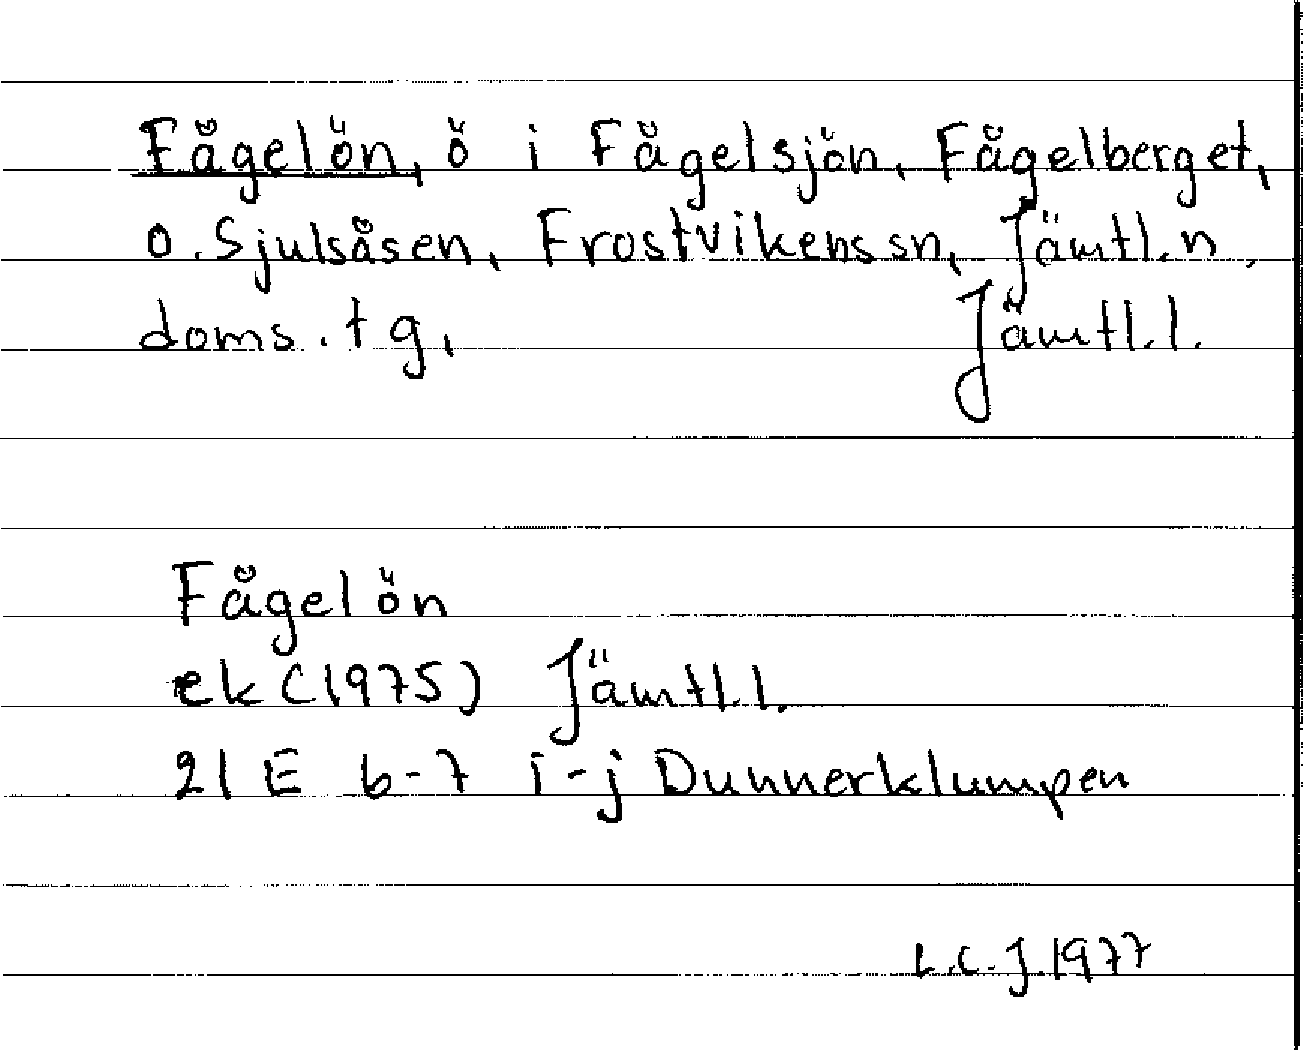 Fågelön, ö i Fågelsjön, Fågelberget,
o. Sjulsåsen, Frostvikens sn, Jämtl. n.
doms. tg, Jämtl. l.
Fågelön
ek (1975) Jämtl. l.
21 E 6-7 i-j Dunnerklumpen
L.C.J. 1977